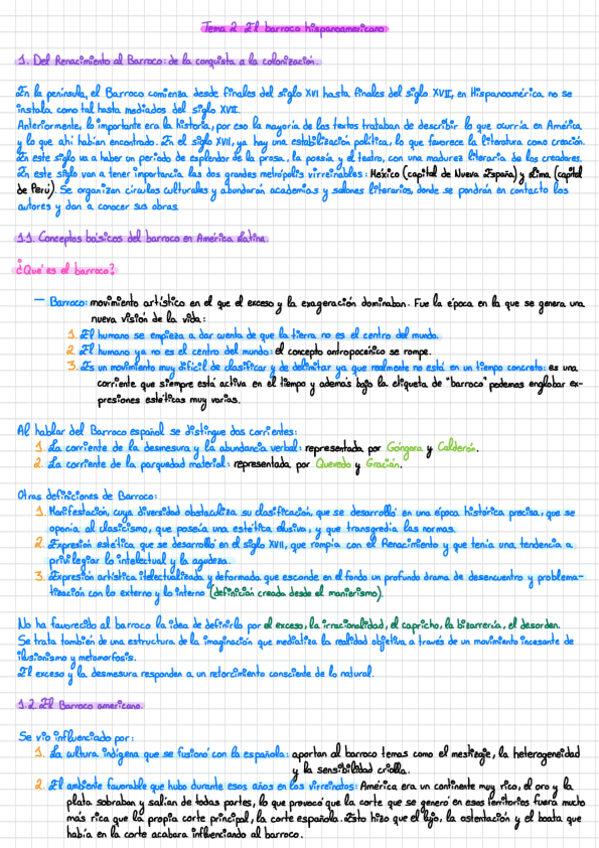 Tema 2. El barroco hispanoamericano
1. Del Renacimiento al Barroco: de la conquista a la colonización.
En la península, el Barroco comienza desde finales del siglo XVI hasta finales del siglo XVII, en Hispanoamérica no se
instala como tal hasta mediados del siglo XVII.
Anteriormente, lo importante era la historia, por eso la mayoría de los textos trataban de describir lo que ocurría en América
y lo que ahí habían encontrado. En el siglo XVII, ya hay una estabilización política, lo que favorece la literatura como creación.
En este siglo va a haber un periodo de esplendor de la prosa, la poesía y el teatro, con una madurez literaria de los creadores.
En este siglo van a tener importancia las dos grandes metrópolis virreinales: México (capital de Nueva España) y Lima (capital
de Perú). Se organizan círculos culturales y abundarán academias y salones literarios, donde se pondrán en contacto los
autores y dan a conocer sus obras.
1.1. Conceptos básicos del barroco en América Latina.
¿Qué es el barroco?
— Barroco: movimiento artístico en el que el exceso y la exageración dominaban. Fue la época en la que se genera una
nueva visión de la vida:
1. El humano se empieza a dar cuenta de que la tierra no es el centro del mundo.
2. El humano ya no es el centro del mundo: el concepto antropocénico se rompe.
3. Es un movimiento muy difícil de clasificar y de delimitar ya que realmente no está en un tiempo concreto: es una
corriente que siempre está activa en el tiempo y además bajo la etiqueta de "barroco" podemos englobar ex-
presiones estéticas muy varias.
Al hablar del Barroco español se distingue dos corrientes:
1. La corriente de la desmesura y la abundancia verbal: representada por Góngora y Calderón.
2. La corriente de la parquedad material: representada por Quevedo y Gracián.
Otras definiciones de Barroco:
1. Manifestación, cuya diversidad obstaculiza su clasificación, que se desarrolló en una época histórica precisa, que se
oponía al clasicismo, que poseía una estética elusiva, y que transgredía las normas.
2. Expresión estética que se desarrolló en el siglo XVII, que rompía con el Renacimiento y que tenía una tendencia a
privilegiar lo intelectual y la agudeza.
3. Expresión artística itelectualizada y deformada que esconde en el fondo un profundo drama de desencuentro y problema-
tización con lo externo y lo interno (definición creada desde el manierismo).
No ha favorecido al barroco la idea de definirlo por el exceso, la irracionalidad, el capricho, la bizarrería, el desorden.
Se trata también de una estructura de la imaginación que mediatiza la realidad objetiva a través de un movimiento incesante de
ilusionismo y metamorfosis.
El exceso y la desmesura responden a un retorcimiento consciente de lo natural.
1.2. El Barroco americano.
Se vio influenciado por:
1. La cultura indígena que se fusionó con la española: aportan al barroco temas como el mestizaje, la heterogeneidad
y la sensibilidad criolla.
2. El ambiente favorable que hubo durante esos años en los virreinatos: América era un continente muy rico, el oro y la
plata sobraban y salían de todas partes, lo que provocó que la corte que se generó en esos territorios fuera mucho
más rica que la propia corte principal, la corte española. Esto hizo que el lujo, la ostentación y el boato que
había en la corte acabara influenciando al barroco.